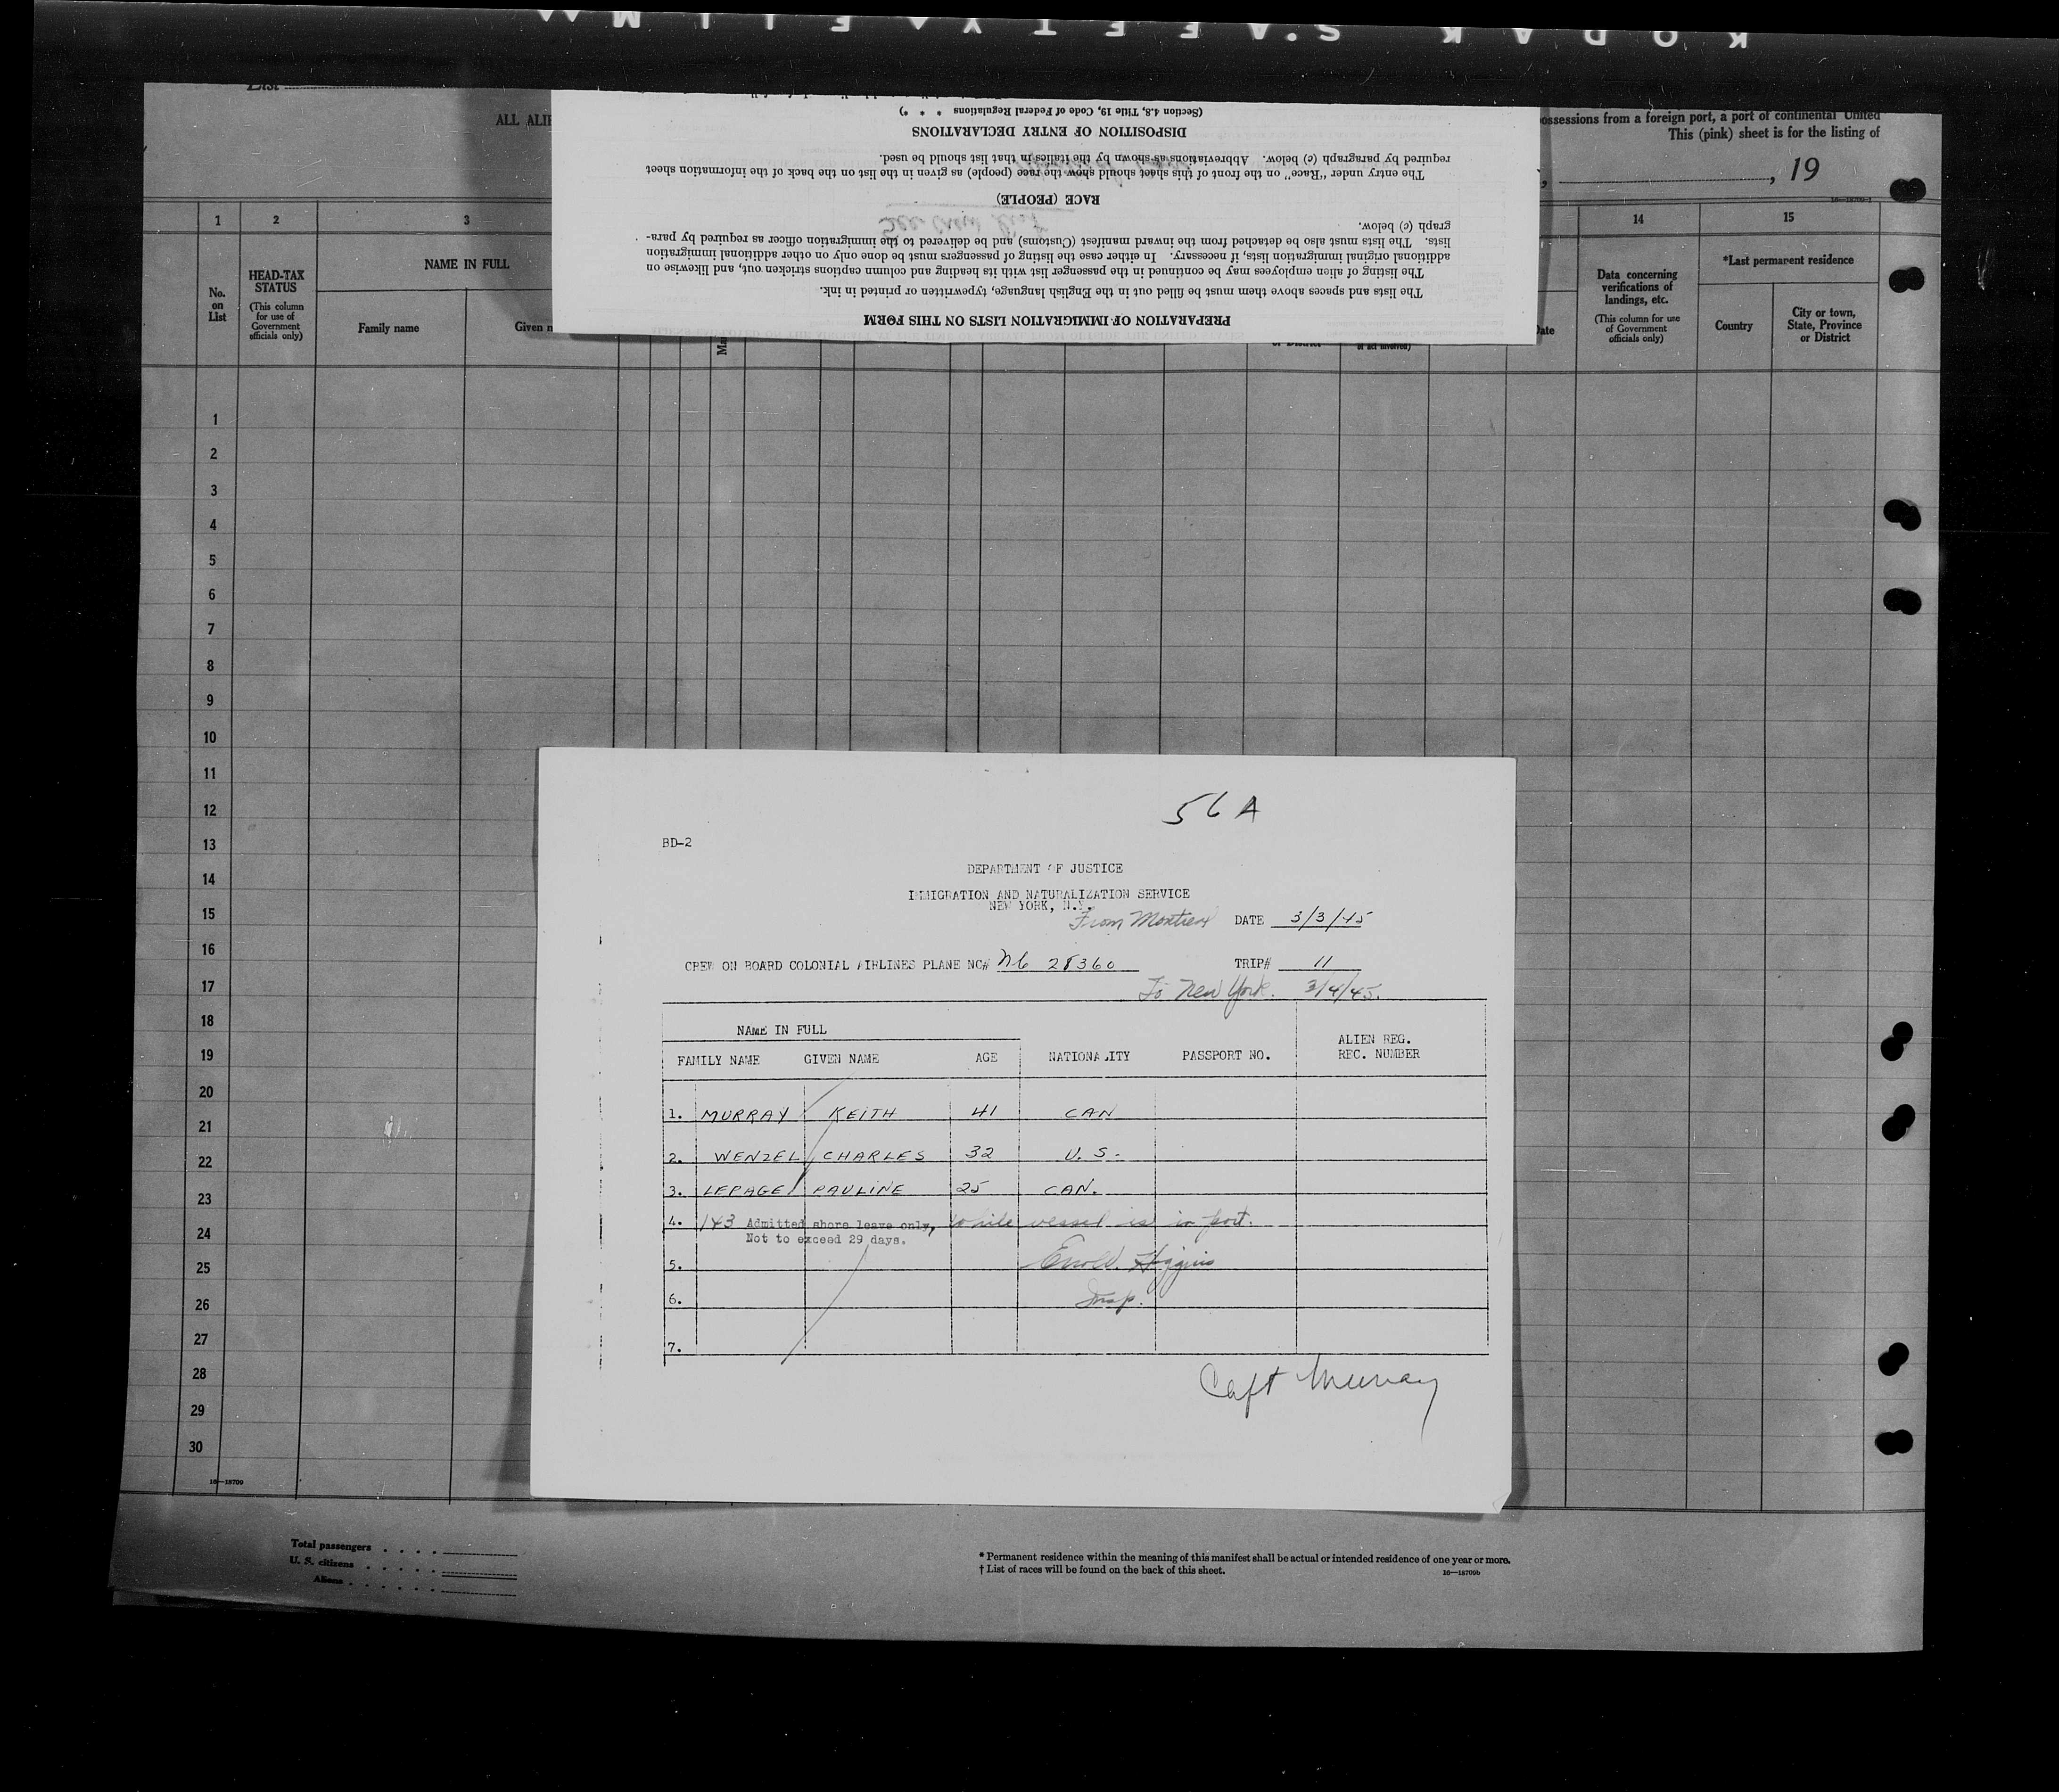 KODAK SAFETY FILM
List
ALL ALIE
ossessions from a foreign port, a port of continental United
This (pink) sheet is for the listing of
, 19
(Section 4.8, Title 19, Code of Federal Regulations * * *)
DISPOSITION OF ENTRY DECLARATIONS
required by paragraph (c) below. Abbreviations as shown by the italics in that list should be used.
The entry under "Race" on the front of this sheet should show the race (people) as given in the list on the back of the information sheet
RACE (PEOPLE)
See Crew List
graph (c) below.
lists. The lists must also be detached from the inward manifest (Customs) and be delivered to the immigration officer as required by para-
additional original immigration lists, if necessary. In either case the listing of passengers must be done only on other additional immigration
The listing of alien employees may be continued in the passenger list with its heading and column captions stricken out, and likewise on
The lists and spaces above them must be filled out in the English language, typewritten or printed in ink.
PREPARATION OF IMMIGRATION LISTS ON THIS FORM
1 2 3 14 15
No. on List
HEAD-TAX STATUS
(This column for use of Government officials only)
NAME IN FULL
Family name
Given n
Ma
or District
of act involved)
Date
Data concerning verifications of landings, etc.
(This column for use of Government officials only)
*Last permanent residence
Country
City or town, State, Province or District
1
2
3
4
5
6
7
8
9
10
11
12
13
14
15
16
17
18
19
20
21
22
23
24
25
26
27
28
29
30
16—18709
56A
BD-2
DEPARTMENT OF JUSTICE
IMMIGRATION AND NATURALIZATION SERVICE
NEW YORK, N.Y.
From Montreal DATE 3/3/45
CREW ON BOARD COLONIAL AIRLINES PLANE NC# NC 28360 TRIP# 11
To New York. 3/4/45.
NAME IN FULL
FAMILY NAME GIVEN NAME AGE NATIONALITY PASSPORT NO. ALIEN REG. REC. NUMBER
1. MURRAY KEITH 41 CAN
2. WENZEL CHARLES 32 U.S.
3. LEPAGE PAULINE 25 CAN.
4. 1+3 Admitted shore leave only, while vessel is in port.
Not to exceed 29 days.
5. Higgins
6. Insp.
7.
Capt Murray
Total passengers . . . .
U. S. citizens . . . . .
Aliens . . . . . .
* Permanent residence within the meaning of this manifest shall be actual or intended residence of one year or more.
† List of races will be found on the back of this sheet.
16—18709b